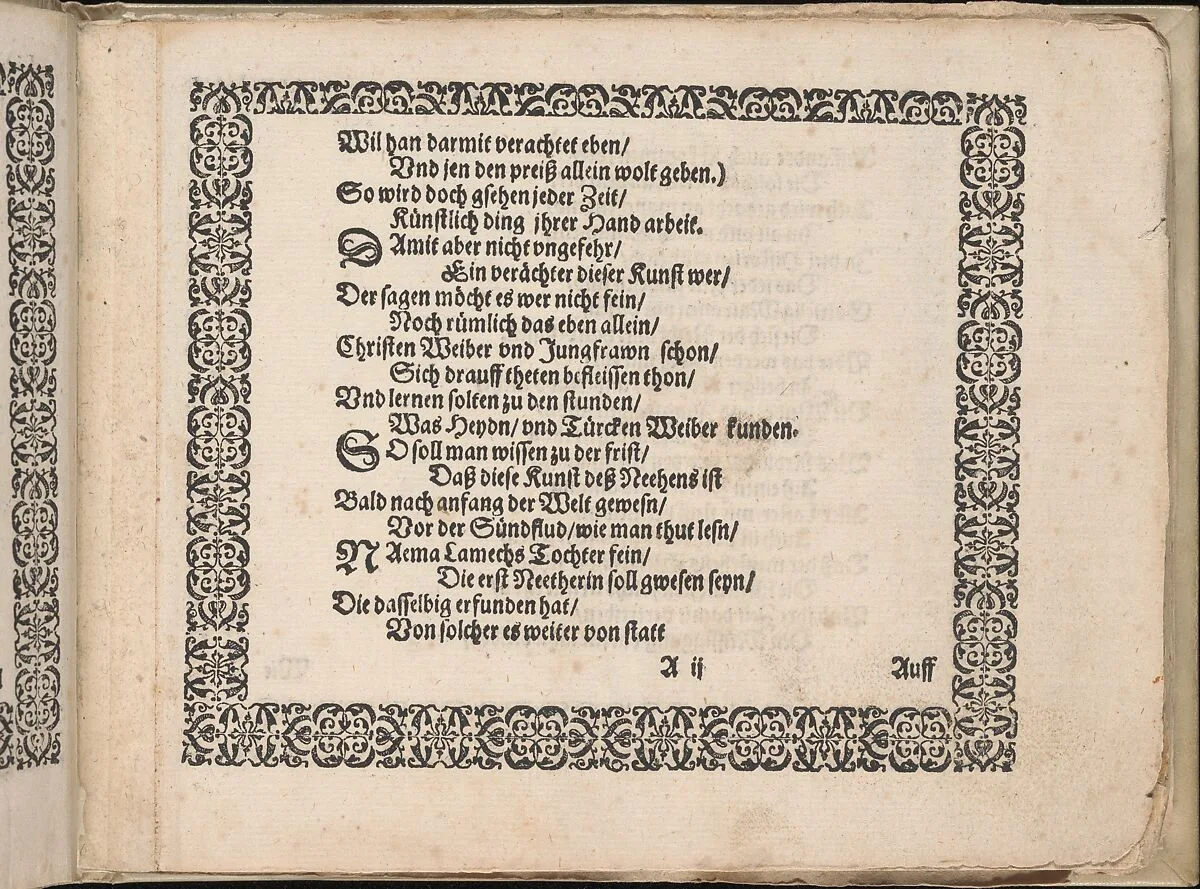 Wil han darmit verachtet eben/
Vnd jen den preiß allein wolt geben.)
So wird doch gsehen jeder Zeit/
Künstlich ding jhrer Hand arbeit.
DAmit aber nicht vngefehr/
Ein verächter dieser Kunst wer/
Der sagen möcht es wer nicht fein/
Noch rümlich das eben allein/
Christen Weiber vnd Jungfrawn schon/
Sich drauff theten befleissen thon/
Vnd lernen solten zu den stunden/
Was Heydn/ vnd Türcken Weiber kunden.
SO soll man wissen zu der frist/
Daß diese Kunst deß Neehens ist
Bald nach anfang der Welt gewesn/
Vor der Sündflud/ wie man thut lesn/
NAema Lamechs Tochter fein/
Die erst Neetherin soll gwesen seyn/
Die dasselbig erfunden hat/
Von solcher es weiter von statt
A ij
Auff